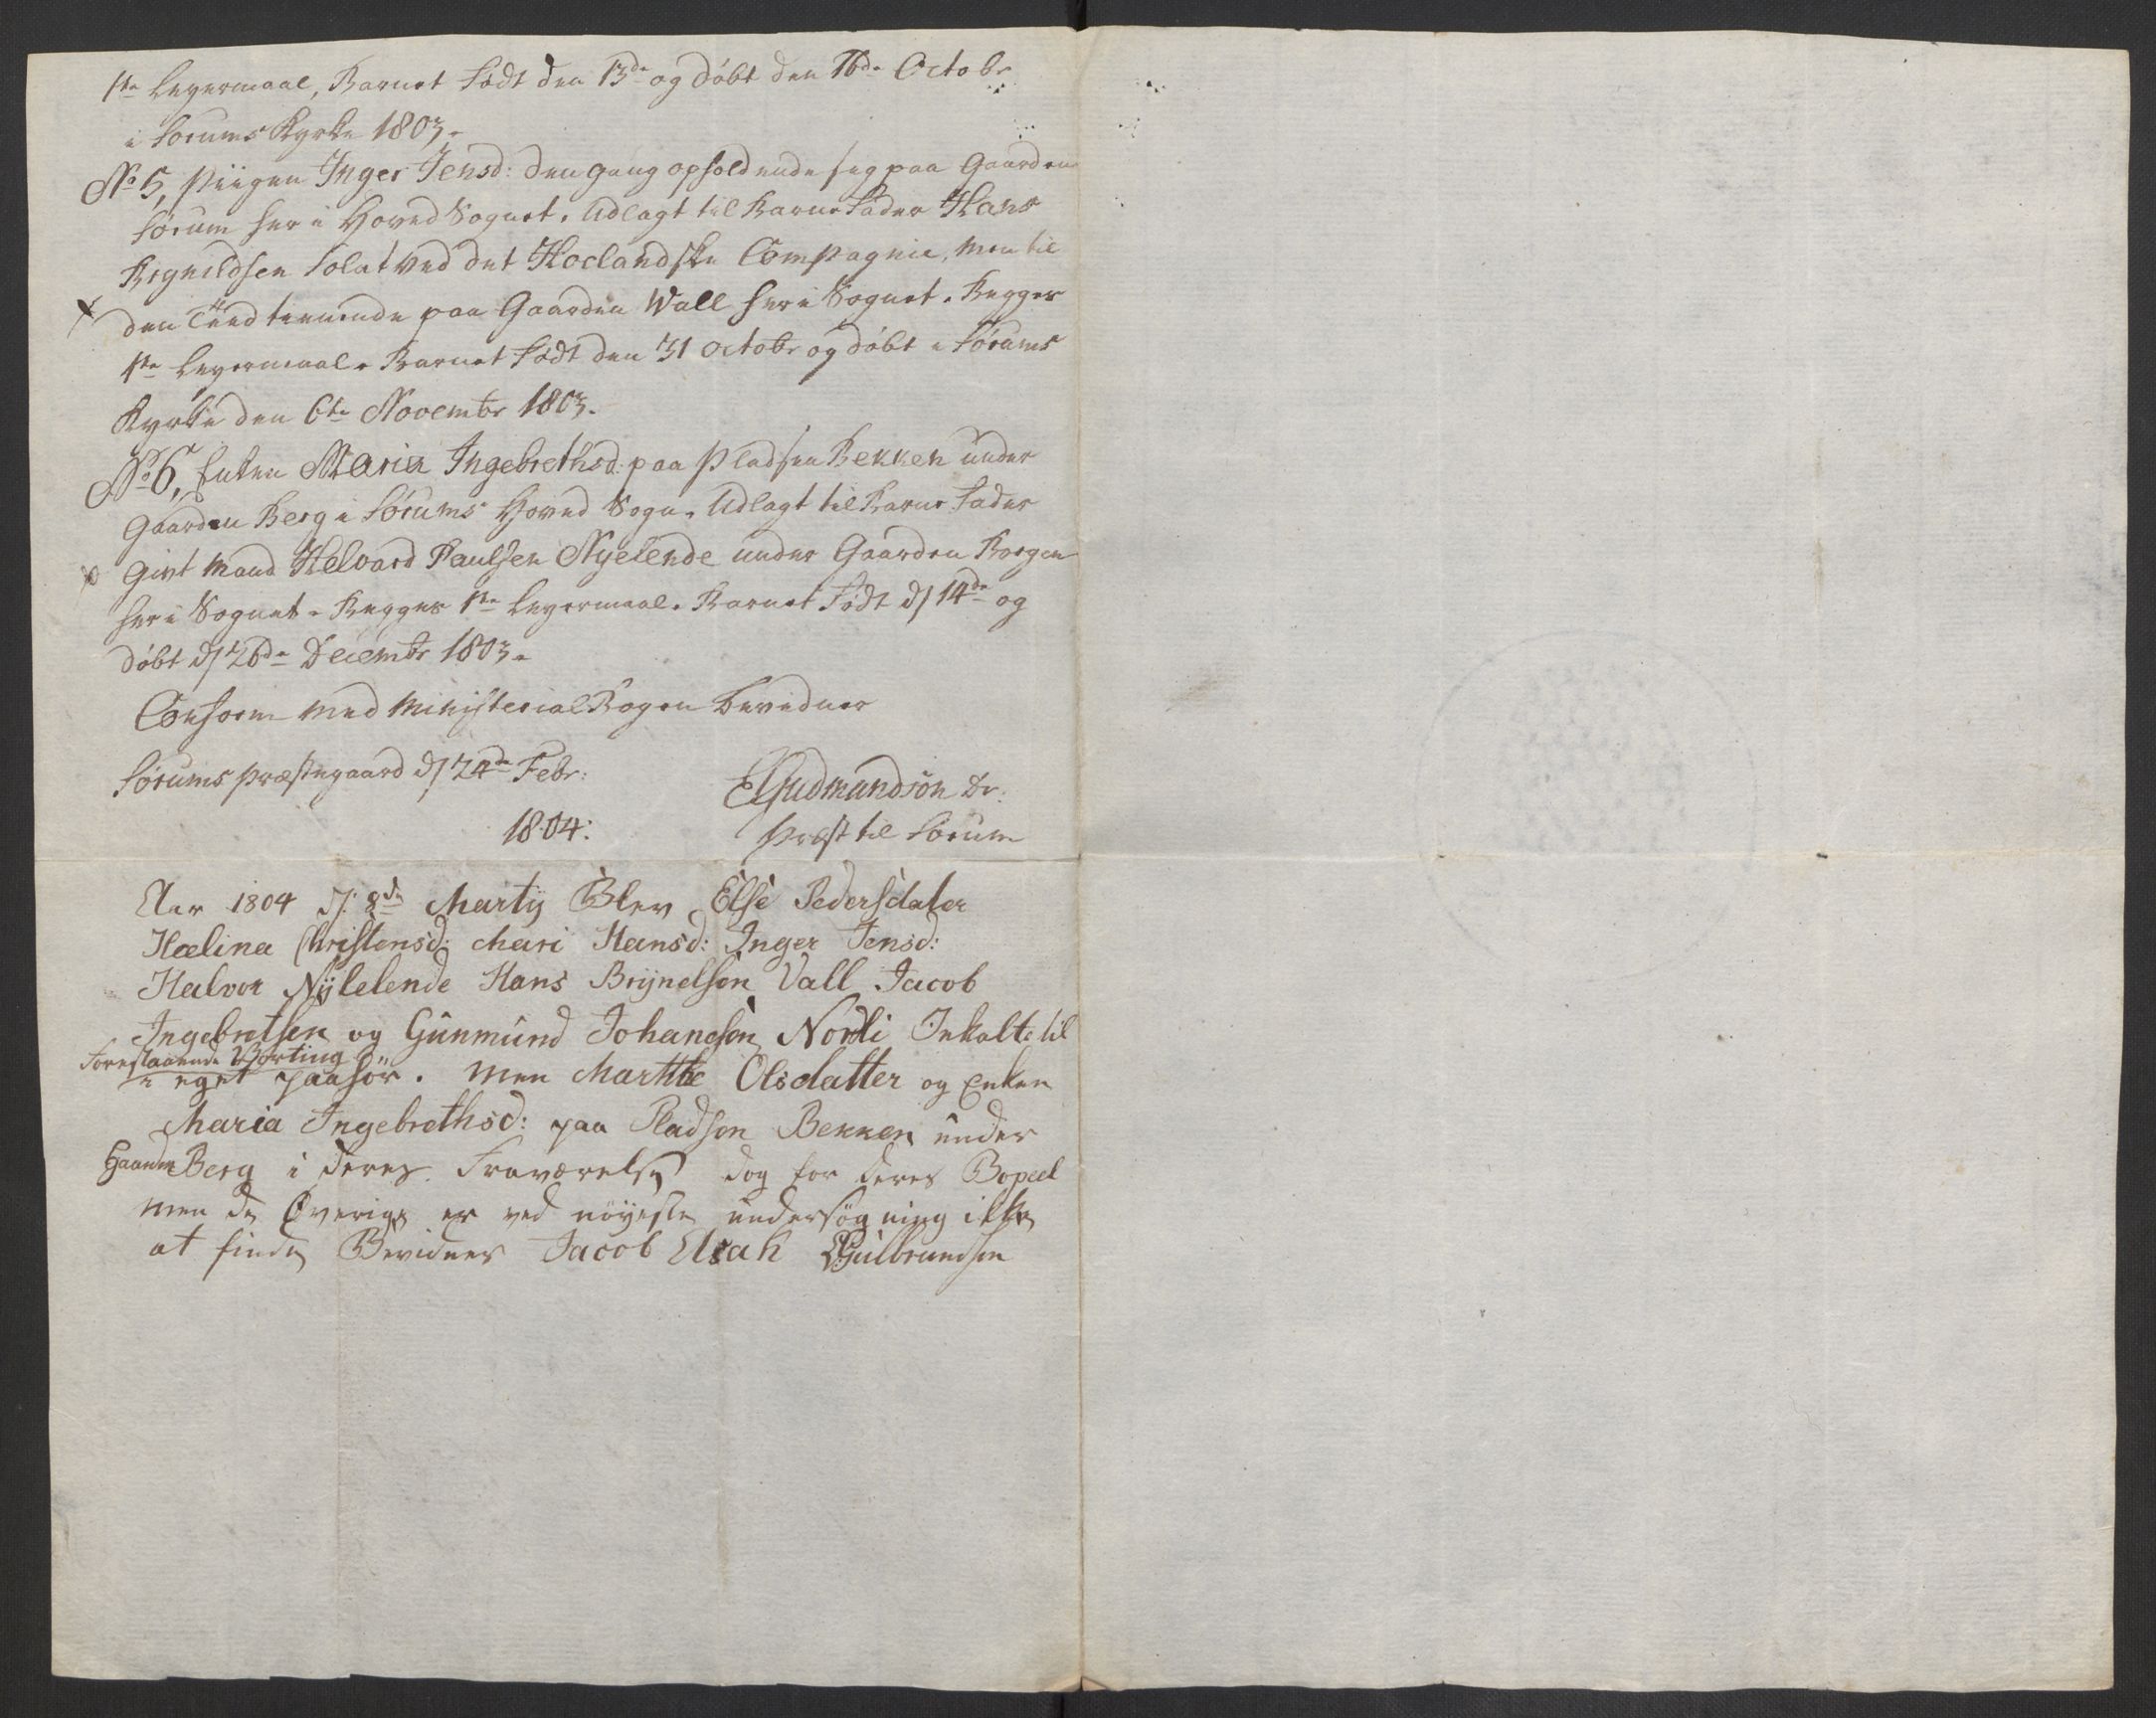 1ste Leyermaal, Barnet født den 13de og døbt den 16de Octobr
i Sørums Kyrke 1803.
No 5, Piigen Inger Jensd: den gang opholdende sig paa Gaarden
Sørum her i Hoved Sognet. Udlagt til Barne Fader Hans
Brynildsen Solat ved det Høelandske Compagnie, men til
den Tiid tienende paa Gaarden Wall her i Sognet. Begges
1ste Leyermaal. Barnet født den 31 Octobr og døbt i Sørums
Kyrke den 6te Novembr 1803.
No 6, Enken Maria Ingebrethsd: paa Pladsen Bekken under
Gaarden Berg i Sørums Hoved Sogn. Udlagt til Barne Fader
Givt Mand Helvord Paulsen Nyelende under Gaarden Borgen
her i Sognet. Begges 1ste Leyermaal. Barnet født d/ 14de og
døbt d/ 26de Decembr 1803.
Conform med Ministerial Bogen bevidner
Sørums Præstegaard d/ 24de Febr:
1804:
EGudmandsøn Dr.
Præst til Sørum
Aar 1804 d: 8de Martij Blev Else Pedersdater
Hælina Christensd: Mari Hansd: Inger Jensd:
Halvor Nÿlelende Hans Brÿnelsen Vall Jacob
Ingebretsen og Gunmund Johansen Nordli Inkalte til
Forestaaende Vorting
i eget paahør. Men Marthe Olsdatter og Enken
Maria Ingebrethsd: paa Pladsen Bekken under
Gaarden Berg i deres Fraværelse dog for deres Bopæl
men de Øverige er ved nøyeste undersøgning ikke
at finde Bevidner Jacob Asak Gulbrandsen